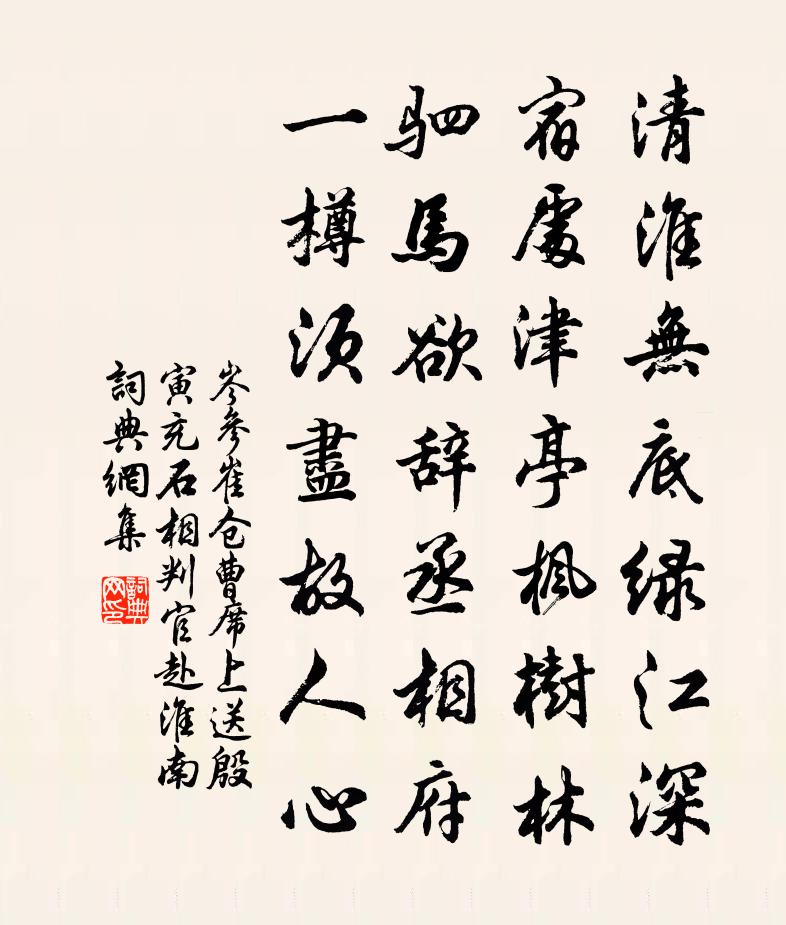 清淮無底緑江深
宿處津亭楓樹林
驷馬欲辞丞相府
一樽须盡故人心
岑參崔仓曹席上送殷
寅充石相判官赴淮南
詞典網集
詞典網印